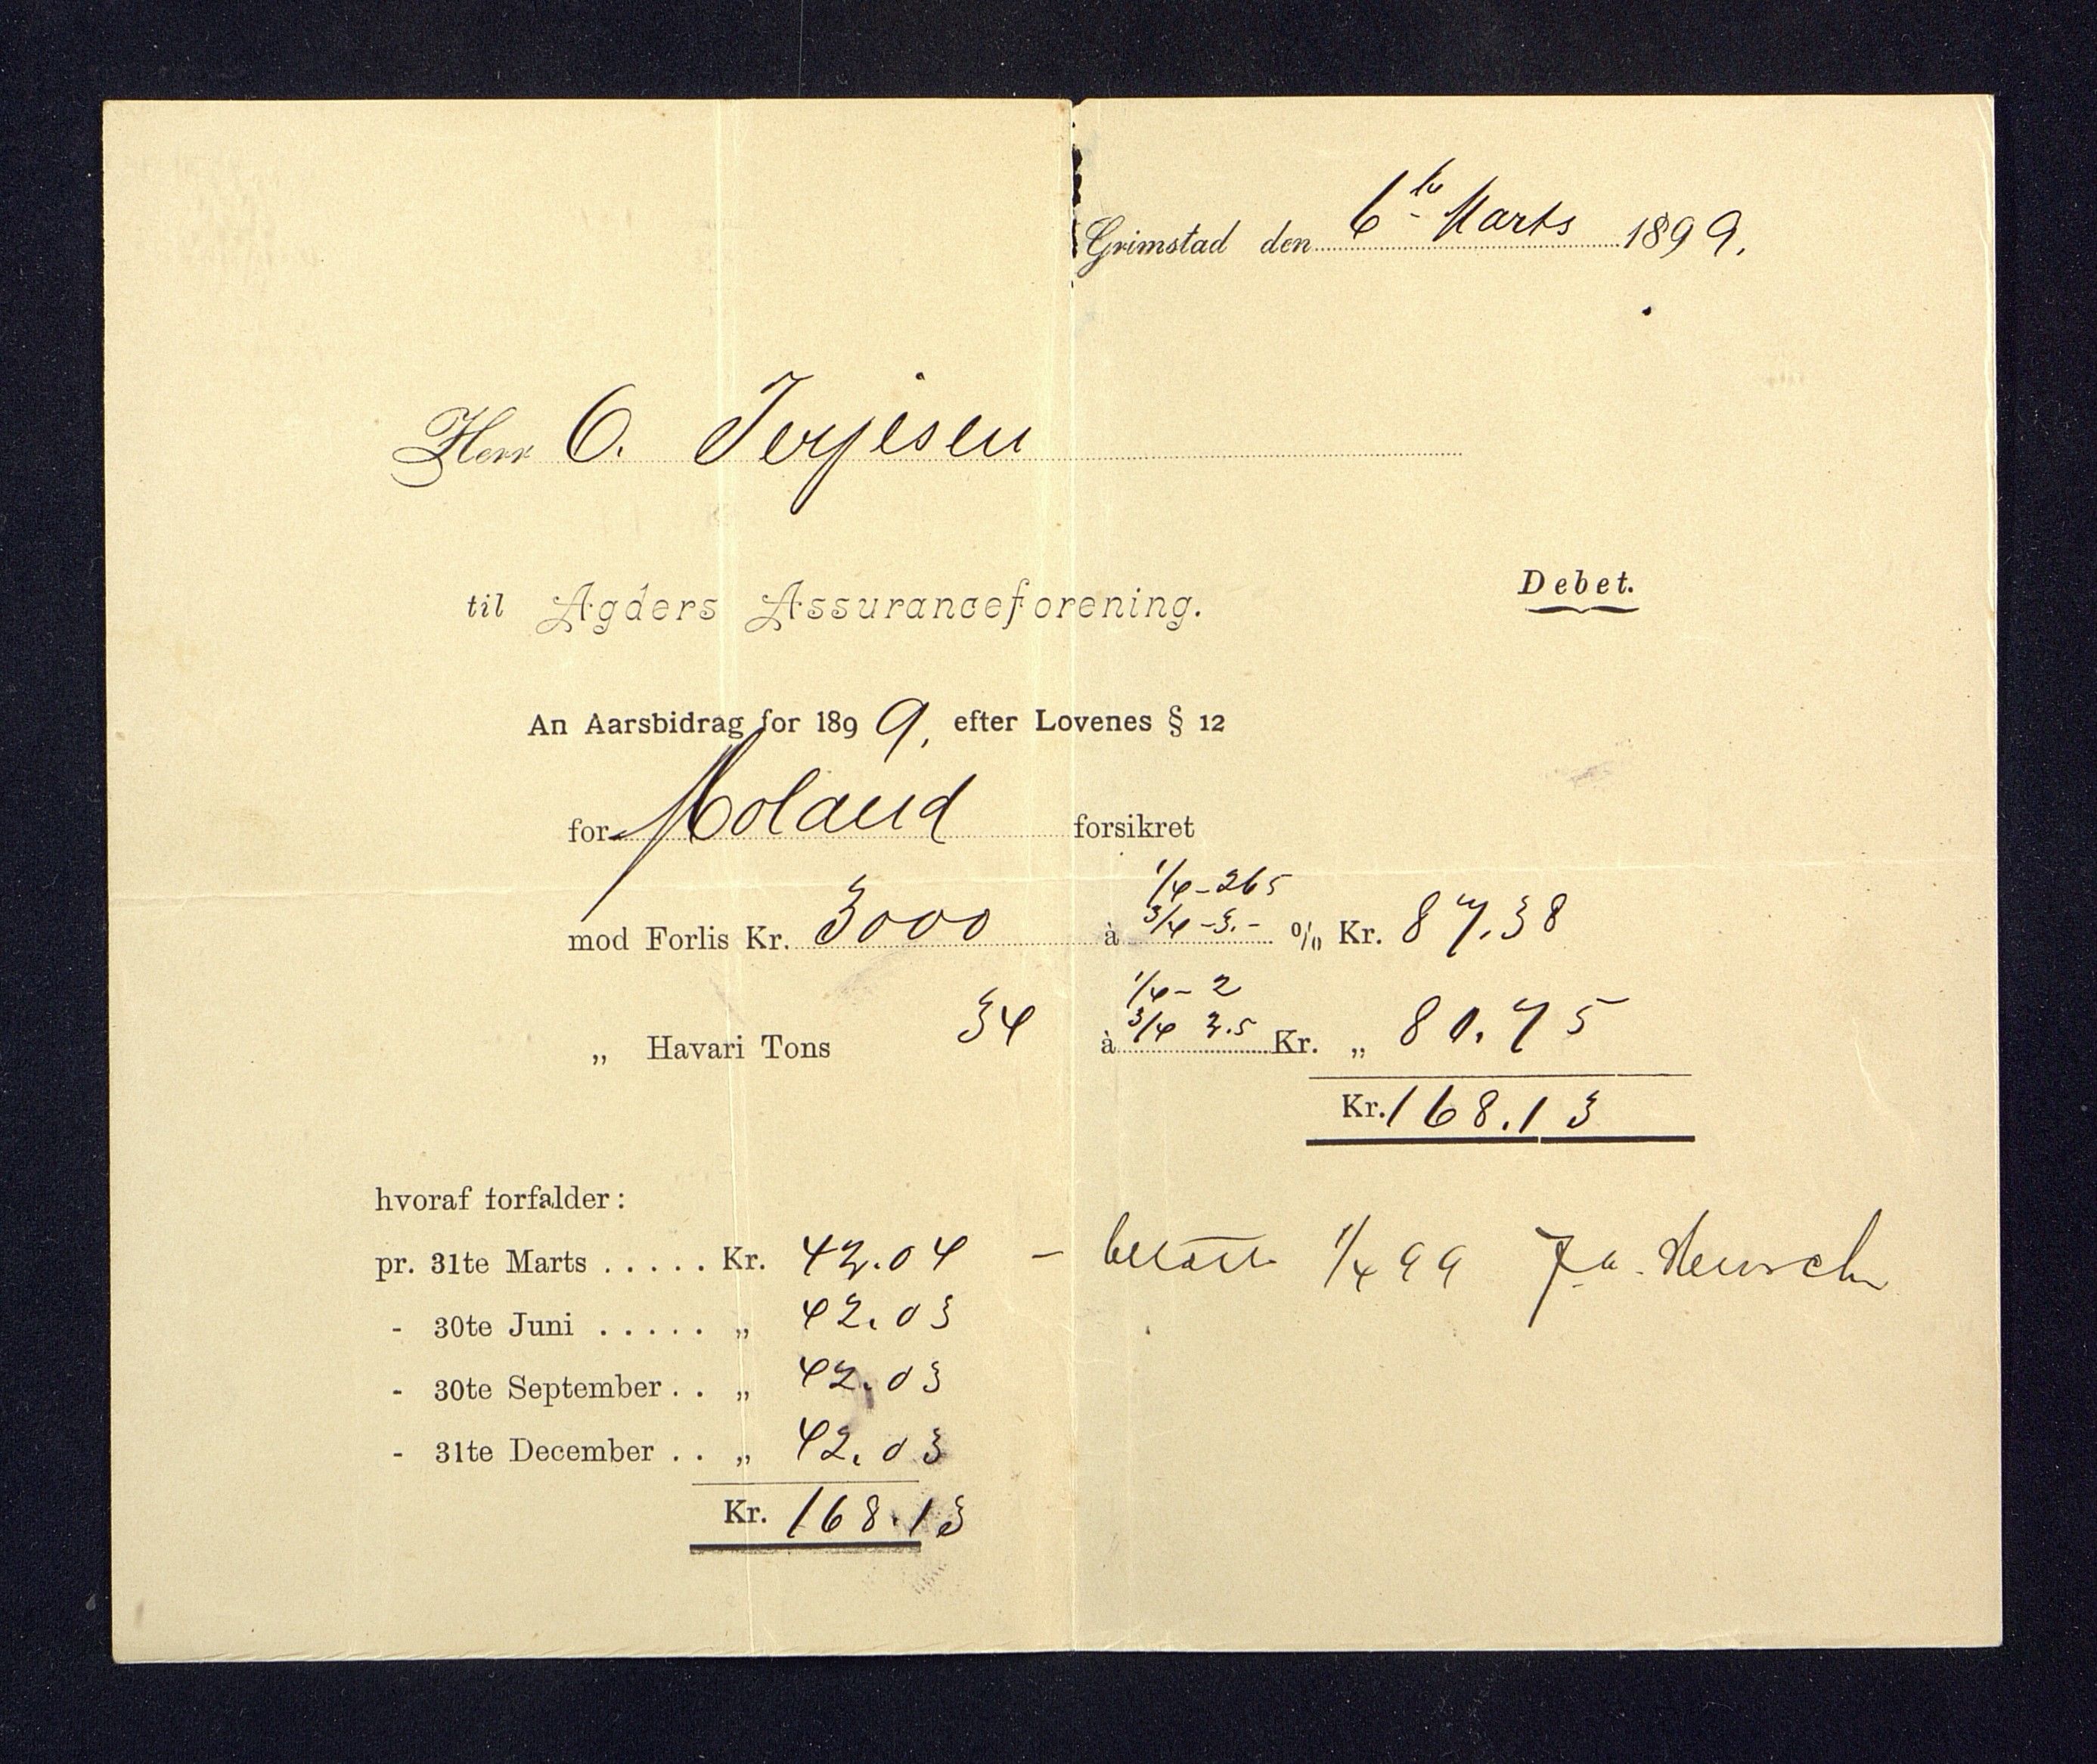 Grimstad den 6te Marts 1899.
Herr O. Terjesen
til Agders Assuranceforening.
Debet.
An Aarsbidrag for 1899, efter Lovenes § 12
for Moland forsikret
1/4 - 265
mod Forlis Kr. 3000 à 3/4 - 3.- % Kr. 87.38
1/4 - 2
„ Havari Tons 34 à 3/4 2.5 Kr. „ 80.75
Kr. 168.13
hvoraf forfalder:
pr. 31te Marts ..... Kr. 42.04 - betalt 1/4 99
- 30te Juni ..... „ 42.03
- 30te September .. „ 42.03
- 31te December .. „ 42.03
Kr. 168.13